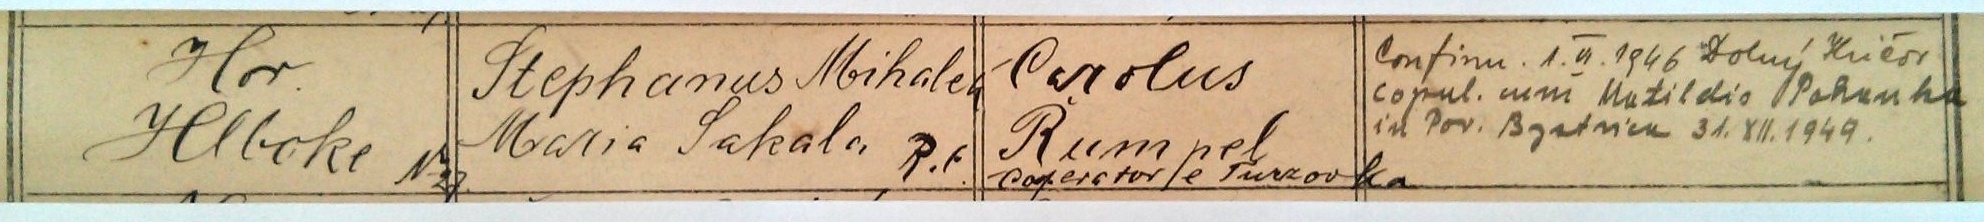 Hor.
Hlboke No 27.
Stephanus Mihalec
Maria Sakala R.C.
Carolus
Rumpel
cooperator e Turzovka
Confirm. 1.VI.1946 Dolný Hričov
copul. cum Matildio Pohanka
in Pov. Bystrica 31.XII.1949.